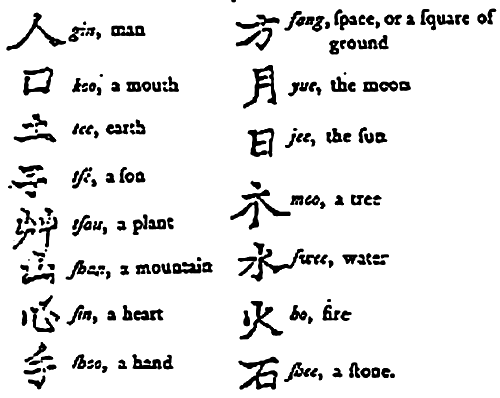 人 gin, man
口 keo, a mouth
土 tee, earth
子 tſé, a ſon
艸 tſau, a plant
山 ſhan, a mountain
心 ſin, a heart
手 ſheo, a hand
方 fang, ſpace, or a ſquare of
ground
月 yue, the moon
日 jee, the ſun
木 moo, a tree
水 ſwee, water
火 ho, fire
石 ſhee, a ſtone.